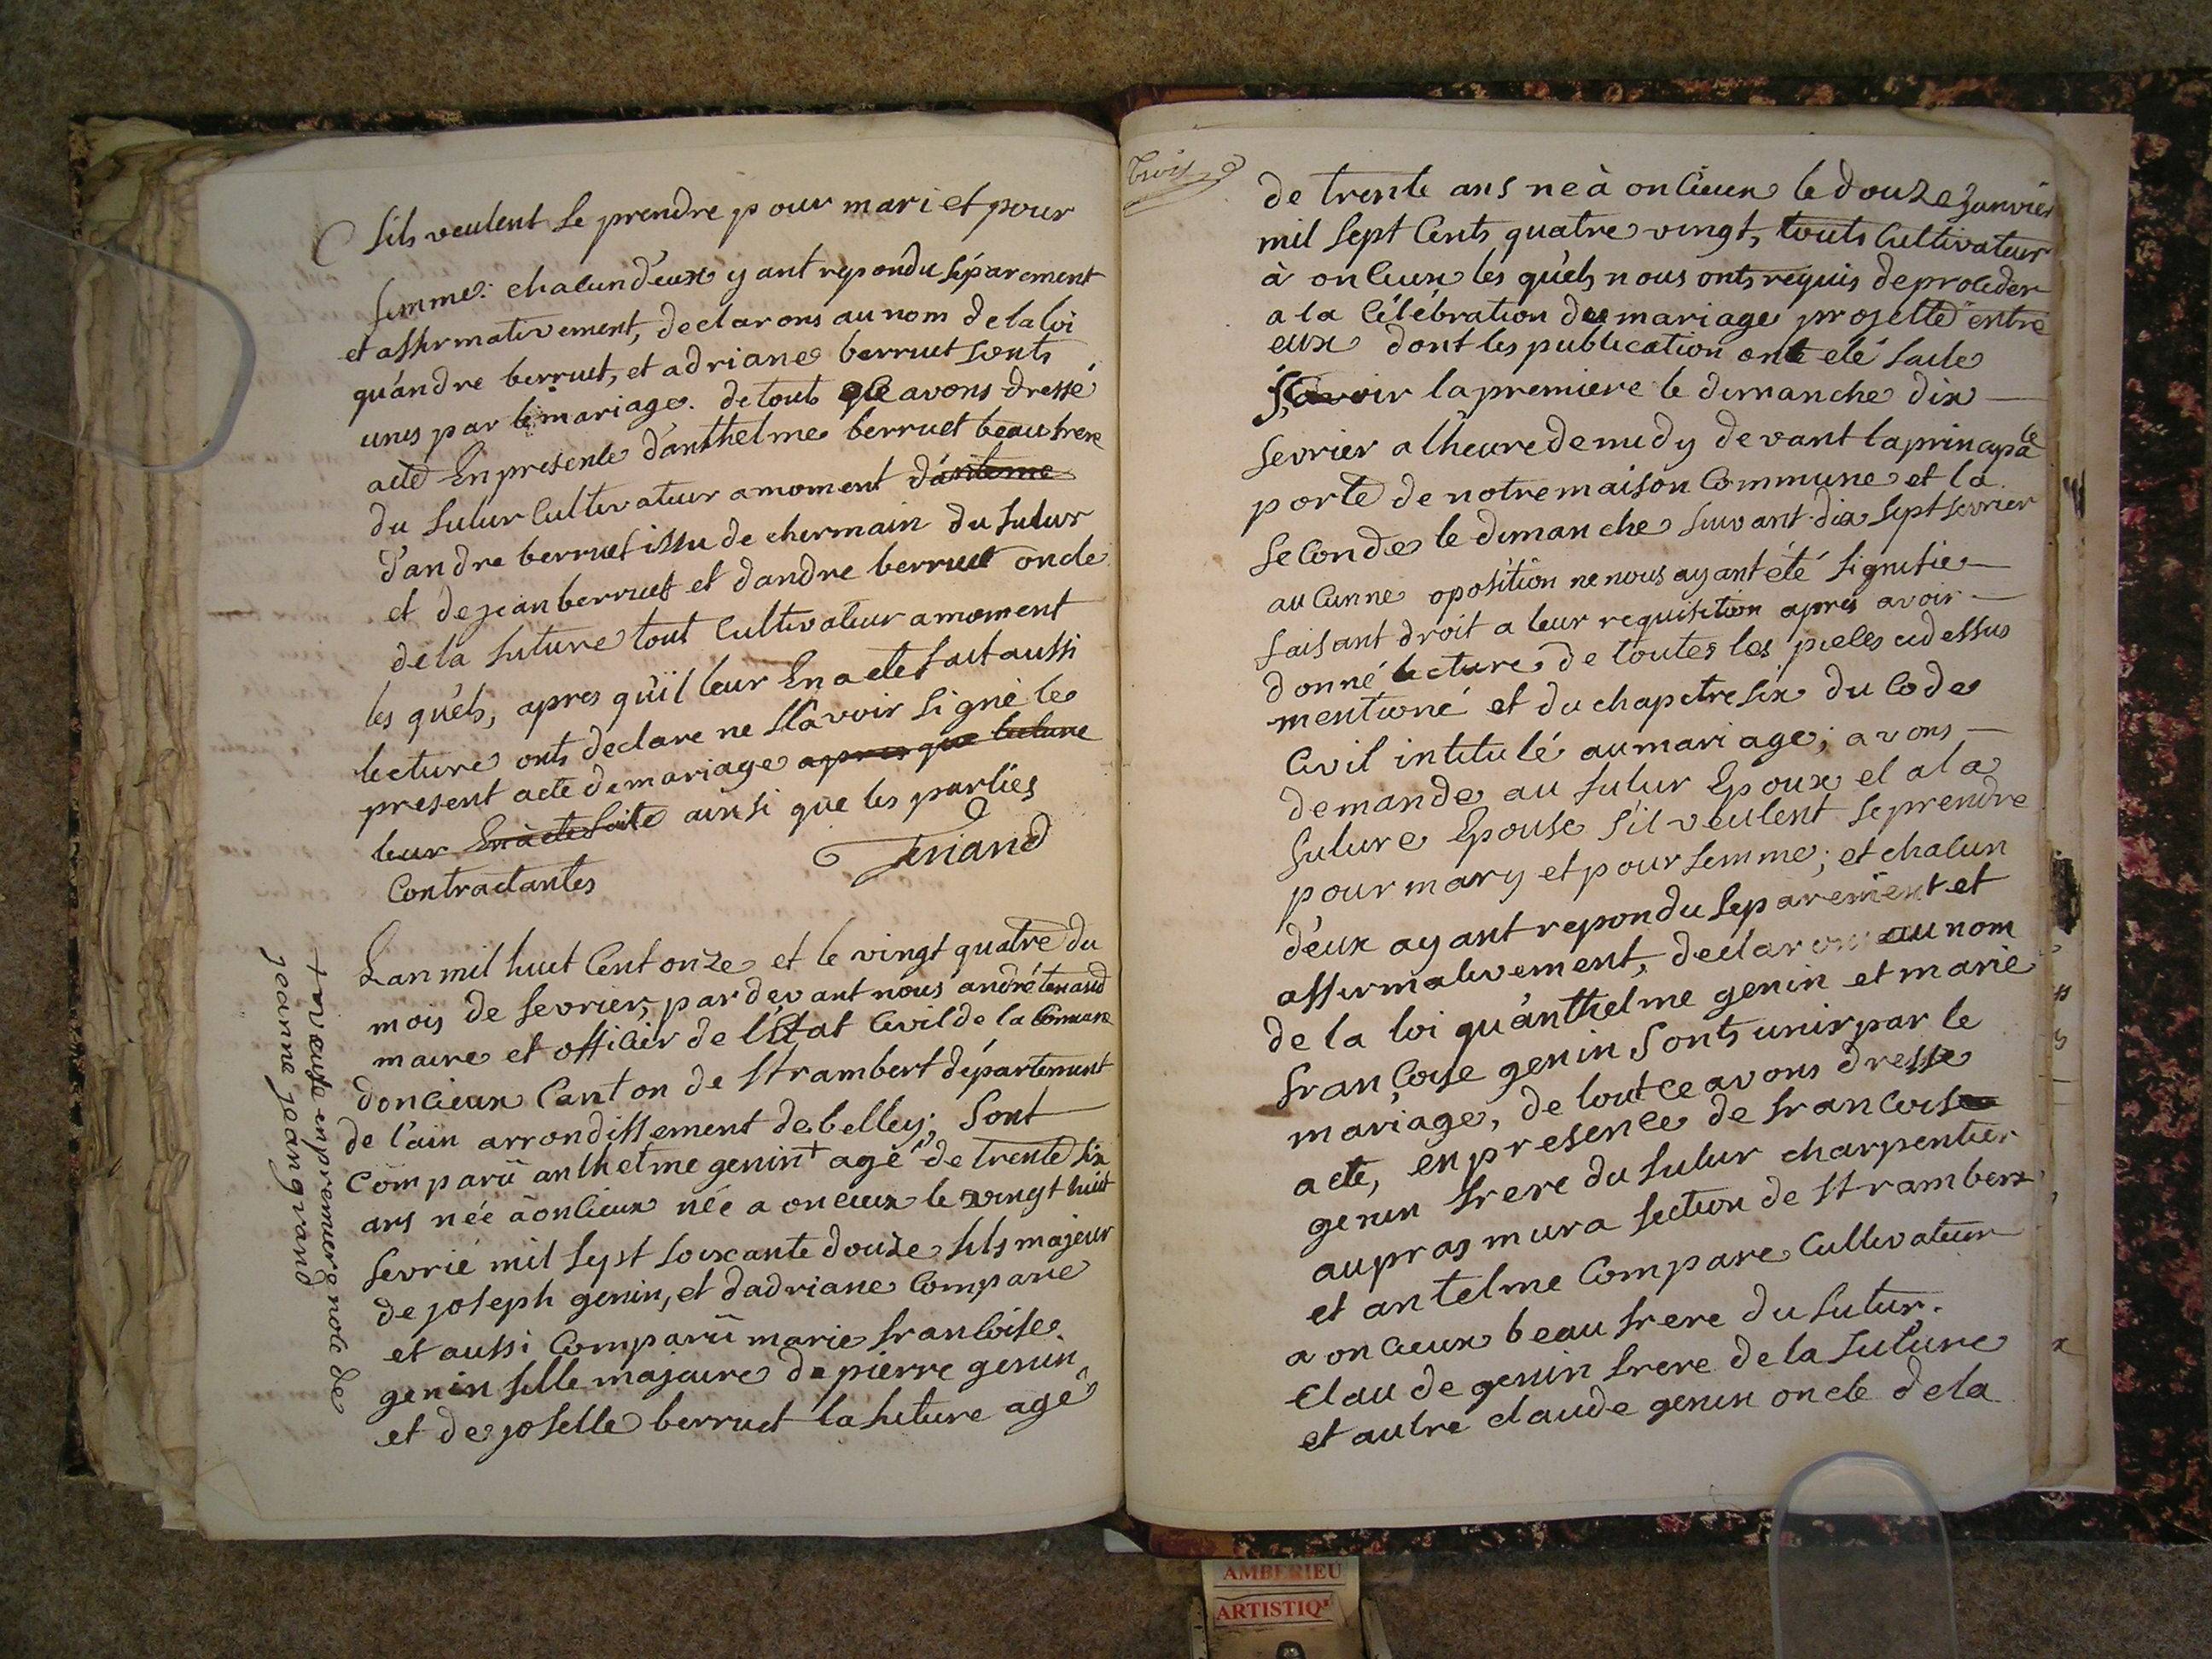 sils veulent se prendre pour mari et pour
femme. chacun d'eux yant repondu séparement
et affirmativement, declarons au nom de la loi
qu'andre berruet, et adriane berruet sonts
unis par le mariage. de tout ce avons dressé
acte En presence d'anthelme berruet beau frere
du futur Cultivateur a moment
d'andre berruet issu de chermain du futur
et de jean berruet et dandre berruet oncle
de la future tout Cultivateur a moment
les quels, apres qu'il leur En a ete fait aussi
lecture onts declare ne scavoir signé le
present acte de mariage apres que lecture
leur En a ete faite ainsi que les parties
Contractantes
Tenand
Lan mil huit Cent onze et le vingt quatre du
mois de fevrier, par devant nous andré tenand
maire et officier de l'Etat Civil de la Commune
doncieux Canton de St rambert département
de l'ain arrondissement de belley, Sont
Comparu anthelme genin + agé de trente six
ans née à oncieux née a oncieux le vingt huit
fevrié mil sept soixante douze fils majeur
de joseph genin, et dadriane Compare
et aussi Comparu marie francoise
genin fille majeure de pierre genin
et de joselle berruet la future agé
+ veufe en premiere nole de
jeanne jeangrand
trois
de trente ans ne à oncieux le douze Janvier
mil sept Cents quatre vingt, touts Cultivateur
à oncieux les quels nous onts requis de proceder
a la Célébration du mariage projetté entre
eux dont les publication ont eté faite
Scavoir la premiere le dimanche dix
fevrier a l'heure de midy devant la principale
porte de notre maison Commune et la
seconde le dimanche suivant dix sept fevrier
aucunne oposition ne nous ayant été signifie
faisant droit a leur requisition apres avoir
donné lecture de toutes les pieces cidessus
mentioné et du chapitre six du Code
Civil intitulé au mariage; avons
demande au futur Epoux et a la
future Epouse s'il veulent se prendre
pour mary et pour femme; et chacun
d'eux ayant repondu separement et
affirmativement, declarons au nom
de la loi qu'anthelme genin et marie
francoise genin Sonts unis par le
mariage, de tout ce avons dresse
acte, en presence de francois
genin frere du futur charpentier
au pras mura section de St rambert
et antelme Compare Cultivateur
a oncieux beau frere du futur.
Claude genin frere de la future
et autre claude genin oncle de la
AMBERIEU
ARTISTIQ